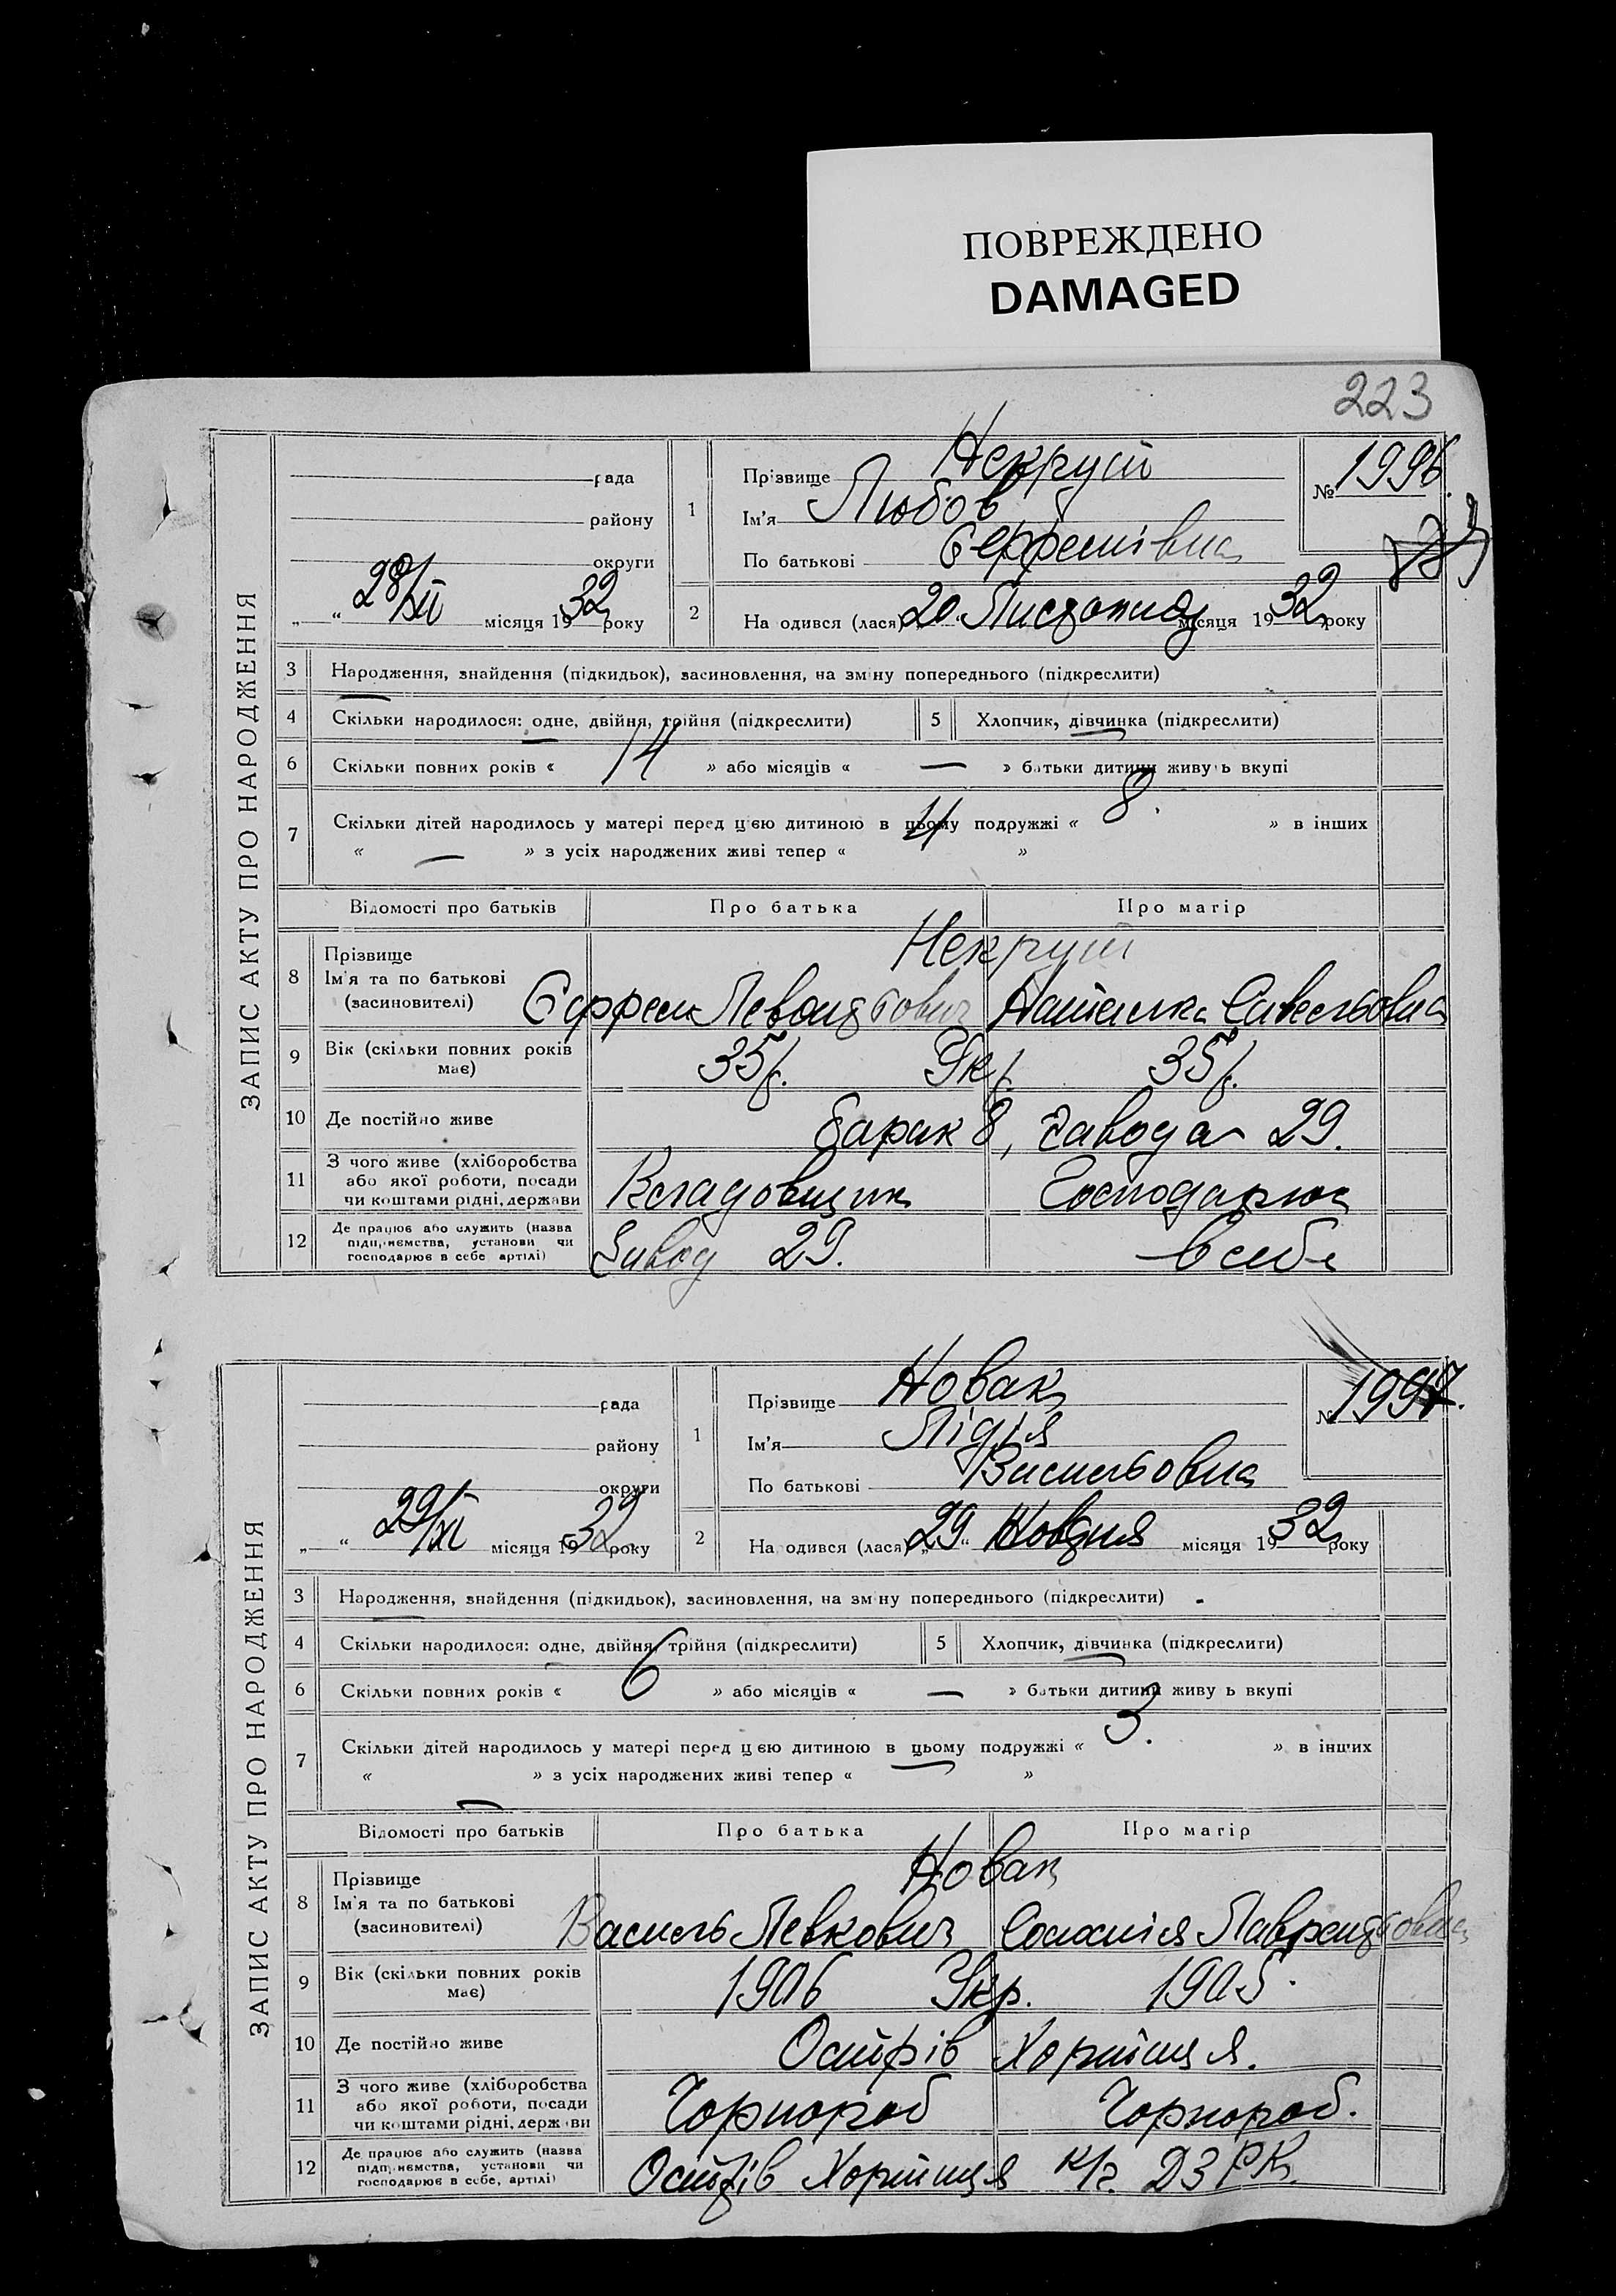 ПОВРЕЖДЕНО
DAMAGED
223
ЗАПИС АКТУ ПРО НАРОДЖЕННЯ
рада
району
округи
„ “ 28/XII місяця 1932 року
1
Прізвище Некруш
Ім'я Любов
По батькові Єфремівна
№ 1996.
2
На одився (лася) „20“ Листопад місяця 1932 року
3 Народження, знайдення (підкидьок), засиновлення, на зміну попереднього (підкреслити)
4 Скільки народилося: одне, двійня, трійня (підкреслити) 5 Хлопчик, дівчинка (підкреслити)
6 Скільки повних років « 14 » або місяців « — » батьки дитини живуть вкупі
7 Скільки дітей народилось у матері перед цією дитиною в цьому подружжі « 8. » в інших
« — » з усіх народжених живі тепер « 4 »
Відомості про батьків Про батька Про матір
8 Прізвище Некруш
Ім'я та по батькові
(засновителі) Єфрем
9 Вік (скільки повних років має) 35 р. Ук 35 р.
10 Де постійно живе барак 8, завода 29.
11 З чого живе (хліборобства або якої роботи, посади чи коштами рідні, держави Кладовщик Господарює
12 Де працює або служить (назва підприємства, установи чи господарює в себе артілі) Завод 29. в себе
ЗАПИС АКТУ ПРО НАРОДЖЕННЯ
рада
району
округи
„ “ 29/XI місяця 1932 року
1
Прізвище Новак
Ім'я Лідія
По батькові Васильовна
№ 1997.
2
На одився (лася) „29“ місяця 1932 року
3 Народження, знайдення (підкидьок), засиновлення, на зміну попереднього (підкреслити)
4 Скільки народилося: одне, двійня, трійня (підкреслити) 5 Хлопчик, дівчинка (підкреслити)
6 Скільки повних років « 6 » або місяців « — » батьки дитини живуть вкупі
7 Скільки дітей народилось у матері перед цією дитиною в цьому подружжі « 3. » в інших
« — » з усіх народжених живі тепер « — »
Відомості про батьків Про батька Про матір
8 Прізвище Новак
Ім'я та по батькові
(засиновителі) Василь Левкович Соломія Лаврентьовна
9 Вік (скільки повних років має) 1906 Укр. 1905.
10 Де постійно живе Острів Хортиця.
11 З чого живе (хліборобства або якої роботи, посади чи коштами рідні, держави Чорнороб Чорнороб.
12 Де працює або служить (назва підприємства, установи чи господарює в себе, артілі) Острів Хортиця к/г. ДЗРК.